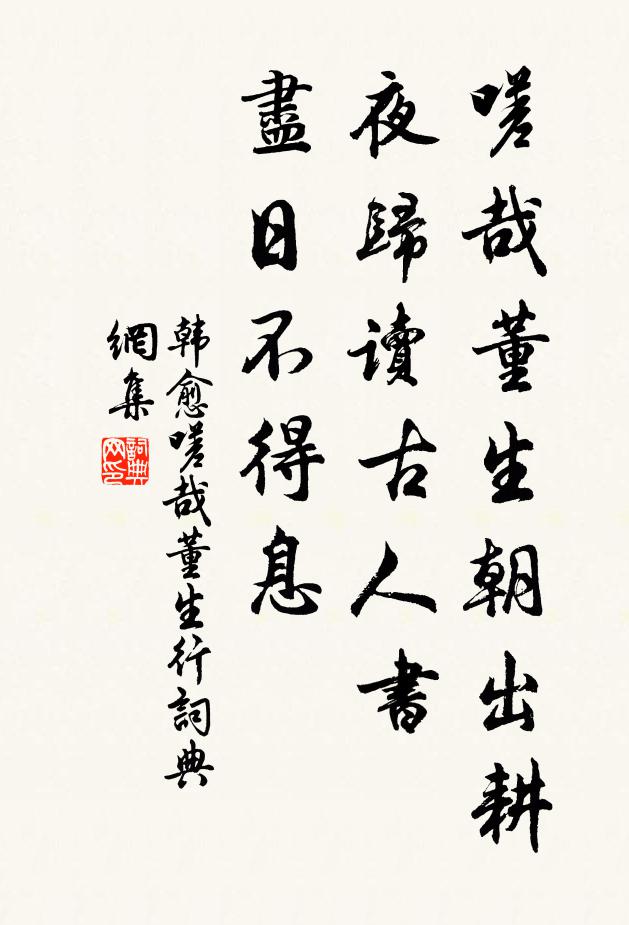 嗟哉董生朝出耕
夜歸讀古人書
盡日不得息
韩愈嗟哉董生行詞典
網集
詞典
网印